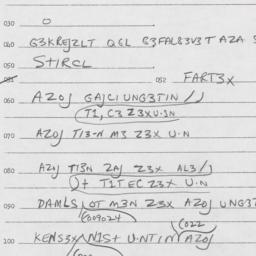 030 0
040 G3KREJZLT QGL G3FAL83V3T AZA
050 STIRCL
051 052 FART3X
060 AZOJ GAJCIUNG3TIN //
T1, C3 Z3XU.SN
070 AZOJ TI3-N M3 Z3X U.N
080 AZOJ TI3N ZAJ Z3X AL3//
)+ TITEC Z3X U.N
090 DAMLS LOT M3N Z3X AZOJ UNG3T
(009024 (022
100 KENS3X NIS+ U.NTIN AZOJ